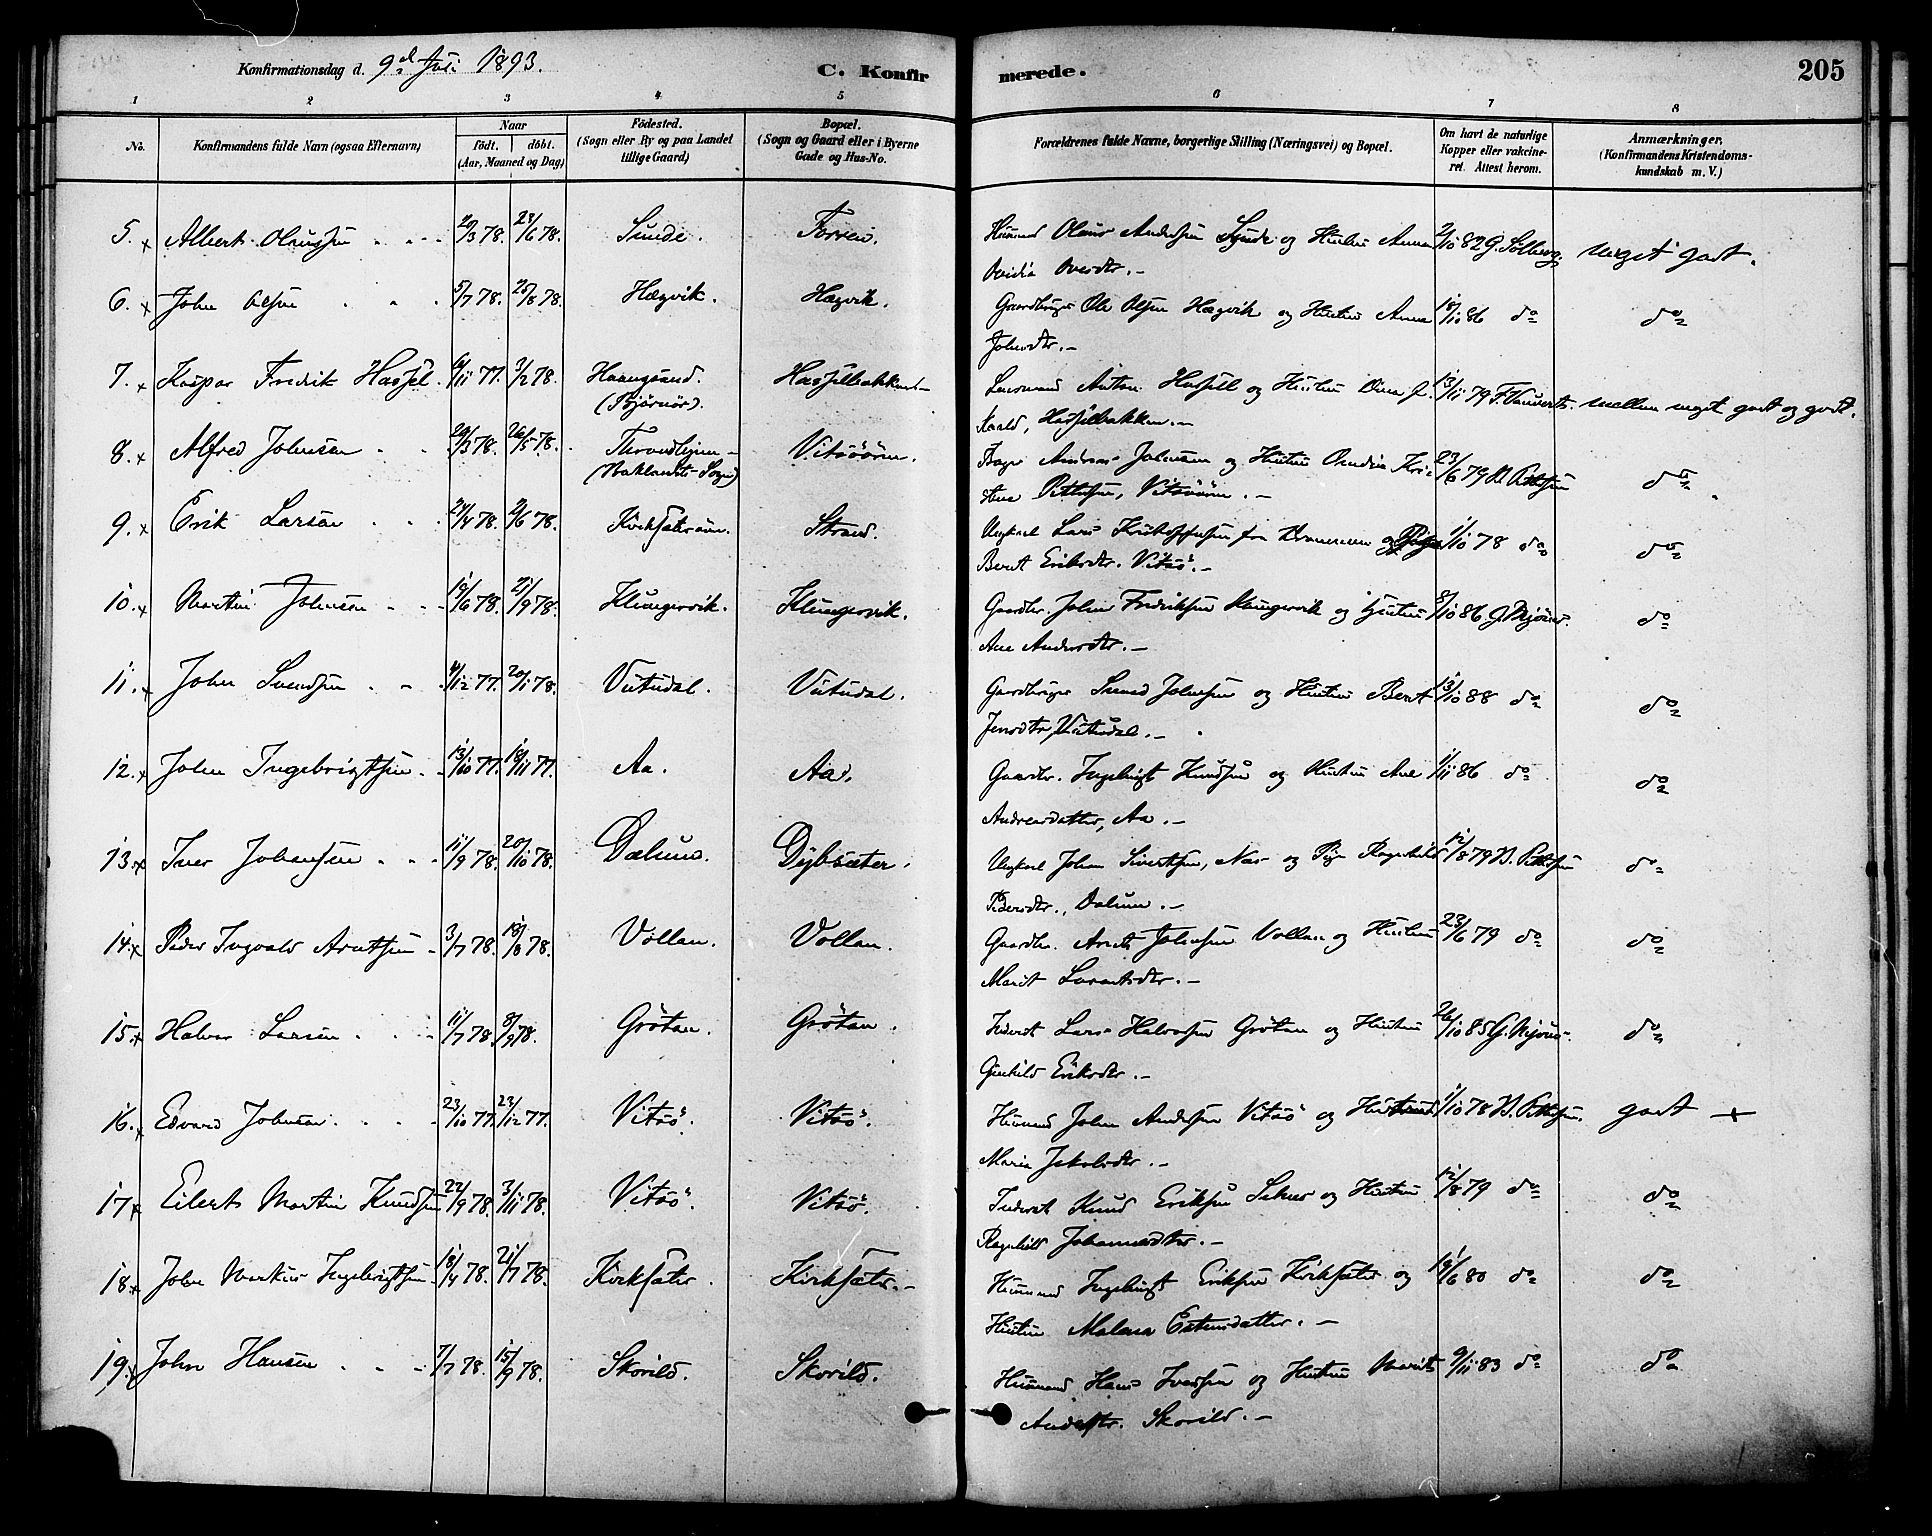 Konfirmationsdag d. 9d Juli 1893. C. Konfir merede. 205
1 2 3 4 5 6 7 8
No. Konfirmandens fulde Navn (ogsaa Efternavn) Naar født. døbt. (Aar, Maaned og Dag) Fødested. (Sogn eller By og paa Landet tillige Gaard) Bopæl. (Sogn og Gaard eller i Byerne Gade og Hus-No. Forældrenes fulde Navne, borgerlige Stilling (Næringsvei) og Bopæl. Om havt de naturlige Kopper eller vakcineret. Attest herom. Anmærkninger. (Konfirmandens Kristendomskundskab m. V.)
5. x Albert Olausen 20/3 78. 23/6 78. Sunde. Husmand Olaus Andersen Sunde og Hustru Anna 2/10 82 G. Solberg meget godt.
6. x John Olsen 5/7 78. 25/8 78. Hægvik. Hægvik. Gaardbruger Ole Olsen Hægvik og Hustru Anna 18/10 86 do do
Johnsdtr. —
7. x Kaspar Fredrik Hassel 6/11 77. 3/2 78. Haangsund. (Bjørnør). Hasselbakken Lensmand Anton Hassel og Hustru Dina f. 13/11 79 mellem meget godt og godt.
Hasselbakken. —
8. x Alfred Johnsen 26/5 78. Throndhjem (Baklandets Sogn) Vitsøøren. Andreas Johnsen og Hustru 23/6 79 do
Vitsøøren. —
9. x Erik Larsen 2/6 78. Kirksæterøren. Strand. Ungkarl Lars 1/10 78 do do
Berit Eriksdtr. Vitsø. —
10. x Martin Johnsen 19/6 78. 21/9 78. Klungervik. Klungervik. Gaardbr. John Fredriksen Klungervik og Hustru 8/10 86 do
Ane Andersdtr. —
11. x John Svendsen 4/12 77. 20/1 78. Vutudal. Vutudal. Gaardbruger Svend Johnsen og Hustru Berit 13/10 88 do do
Jensdtr, Vutudal. —
12. x John Ingebrigtsen 13/10 77. 18/11 77. Aa. Aa. Gaardbr. Ingebrigt Knudsen og Hustru Ane 1/11 86 do do
Andreasdatter, Aa. —
13. x Iver Johansen 11/9 78. 20/10 78. Dalum. Dybsæter. Ungkarl Johan Sivertsen, Næs og Pige Ragnhild 12/8 79 do
Pedersdtr., Dalum. —
14. x Peder Ingvald Arntsen 3/7 78. 18/8 78. Vollan. Vollan. Gaardbr. Arnt Johnsen Vollan og Hustru 23/6 79 do do
Marit Lorentsdtr. —
15. x Halvor Larsen 11/7 78. 8/9 78. Grøtan. Grøtan. Inderst Lars Halvorsen Grøtan og Hustru 26/10 85 do
Gunhild Eriksdtr. —
16. x Edvard Johnsen 23/10 77. 23/12 77. Vitsø. Vitsø. Husmand John Andersen Vitsø og Hustru 1/10 78 godt +
Maria Jakobsdtr. —
17. x Eilert Martin Knudsen 22/9 78. 3/11 78. Vitsø. Vitsø. Inderst Knud Eriksen og Hustru 12/8 79 do do
Ragnhild Johannesdtr. —
18. x John Markus Ingebrigtsen 18/4 78. 21/7 78. Kirksæter. Kirksæter. — Husmand Ingebrigt Eriksen Kirksæter og 19/6 80 do do
Hustru Malena Estensdatter. —
19. x John Hansen 7/7 78. 15/9 78. Skorild. Skorild. Husmand Hans Iversen og Hustru Marit 9/11 83 do do
Andersdtr. Skorild. —